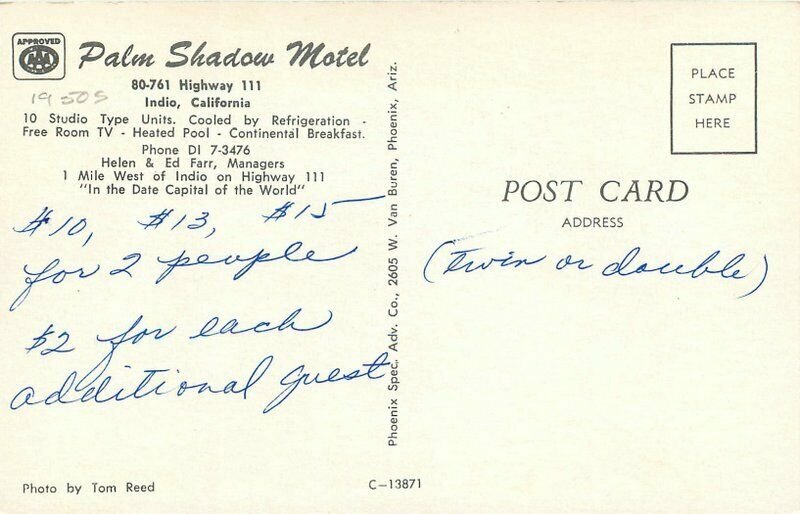 APPROVED
AAA
Palm Shadow Motel
80-761 Highway 111
Indio, California
19 50s
10 Studio Type Units. Cooled by Refrigeration -
Free Room TV - Heated Pool - Continental Breakfast.
Phone DI 7-3476
Helen & Ed Farr, Managers
1 Mile West of Indio on Highway 111
"In the Date Capital of the World"
$10, $13, $15
for 2 people
$2 for each
additional guest
Photo by Tom Reed
Phoenix Spec. Adv. Co., 2605 W. Van Buren, Phoenix, Ariz.
C-13871
PLACE
STAMP
HERE
POST CARD
ADDRESS
(twin or double)